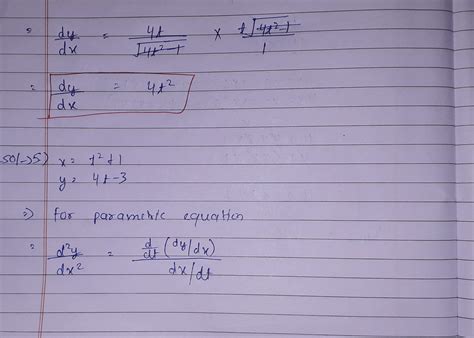 = dy/dx = 4t/√(4t²-1) × t√(4t²-1)/1
= dy/dx = 4t²
sol→5) x = t²+1
y = 4t-3
⇒ for parametric equation
= d²y/dx² = d/dt (dy/dx) / dx/dt